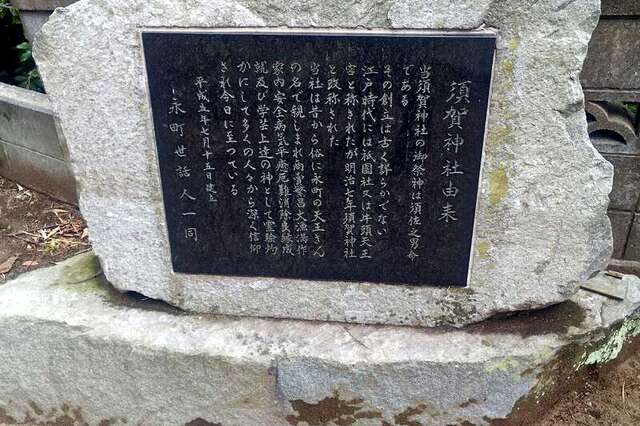 須賀神社由来
当須賀神社の御祭神は須佐之男命
である
その創立は古く詳らかでない
江戸時代には祇園社又は牛頭天王
宮と称されたが明治元年須賀神社
と改称された
当社は昔から俗に永町の天王さん
の名で親しまれ商売繁昌大漁満作
家内安全病気平癒厄難消除良縁成
就及び学芸上達の神として霊験灼
かにして多くの人々から深く信仰
され今日に至っている
平成五年七月十五日建立
永町世話人一同